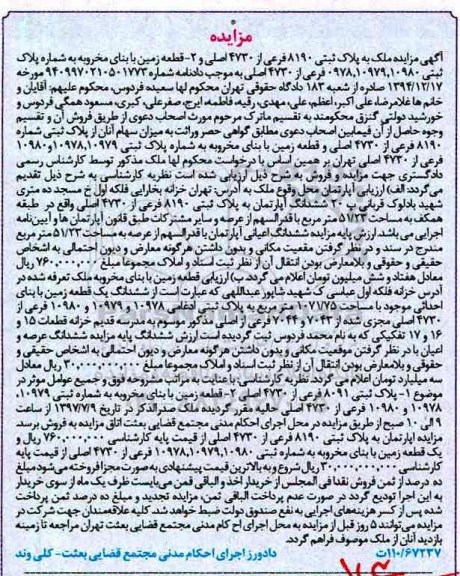 مزایده
آگهی مزایده ملک به پلاک ثبتی ۸۱۹۰ فرعی از ۴۷۳۰ اصلی و ۲- قطعه زمین با بنای مخروبه به شماره پلاک
ثبتی ۱۰۹۸۰,۱۰۹۷۹,۱۰۹۷۸ فرعی از ۴۷۳۰ اصلی به موجب دادنامه شماره ۹۴۰۹۹۷۰۲۱۰۵۰۱۷۷۳ مورخه
۱۳۹۴/۱۲/۱۷ صادره از شعبه ۱۸۳ دادگاه حقوقی تهران محکوم لها سعیده فردوس، محکوم علیهم: آقایان و
خانم ها غلامرضا علی اکبر، اعظم، علی، مهدی، رقیه، فاطمه، ایرج، صفرعلی، کبری، مسعود همگی فردوس و
خورشید دولتی گنزق محکومند به تقسیم ماترک مرحوم مورث اصحاب دعوی از طریق فروش آن و تقسیم
وجوه حاصل از آن فیمابین اصحاب دعوی مطابق گواهی حصر وراثت به میزان سهام آنان از پلاک ثبتی شماره
۸۱۹۰ فرعی از ۴۷۳۰ اصلی و قطعه زمین با بنای مخروبه به شماره پلاک ثبتی ۱۰۹۷۸,۱۰۹۷۹ و ۱۰۹۸۰
فرعی از ۴۷۳۰ اصلی تهران بر همین اساس با درخواست محکوم لها ملک مذکور توسط کارشناس رسمی
دادگستری جهت مزایده و فروش به شرح ذیل ارزیابی شده است نظریه کارشناسی به شرح ذیل تقدیم
می‌گردد: الف) ارزیابی آپارتمان محل وقوع ملک به آدرس: تهران خزانه بخارایی فلکه اول خ مسجد ده متری
شهید بادلوک قربانی پ ۲۰ ششدانگ آپارتمان به پلاک ثبتی ۸۱۹۰ فرعی از ۴۷۳۰ اصلی واقع در طبقه
همکف به مساحت ۵۱/۲۳ متر مربع با قدرالسهم از عرصه و سایر مشترکات طبق قانون آپارتمان ها و آیین‌نامه
اجرایی می باشد ارزش پایه مزایده ششدانگ اعیانی آپارتمان با قدرالسهم از عرصه به مساحت ۵۱/۲۳ متر مربع
مندرج در سند و در نظر گرفتن موقعیت مکانی و بدون داشتن هرگونه معارض و دیون احتمالی به اشخاص
حقیقی و حقوقی و بلامعارض بودن انتقال آن از نظر ثبت اسناد و املاک مجموعا مبلغ ۷۶۰.۰۰۰.۰۰۰ ریال
معادل هفتاد و شش میلیون تومان اعلام می گردد. ب) ارزیابی قطعه زمین با بنای مخروبه ملک تعرفه شده در
آدرس خزانه فلکه اول عباسی ک شهید شاپور عبداللهی که عبارت است از ششدانگ یک قطعه زمین با بنای
احداثی موجود با مساحت ۱۰۷۱/۷۵ متر مربع به پلاک ثبت ادغامی ۱۰۹۷۸ و ۱۰۹۷۹ و ۱۰۹۸۰ فرعی از
۴۷۳۰ اصلی مجزی شده از ۷۰۴۳ و ۷۰۴۴ فرعی از اصلی مذکور موسوم به مدرسه قدیم خزانه قطعات ۱۵ و
۱۶ و ۱۷ تفکیکی که به نام محمد فردوس ثبت گردیده است ارزش ششدانگ پایه مزایده ششدانگ عرصه و
اعیان با در نظر گرفتن موقعیت مکانی و بدون داشتن هرگونه معارض و دیون احتمالی به اشخاص حقیقی و
حقوقی و بلامعارض بودن انتقال آن از نظر ثبت اسناد و املاک مجموعا مبلغ ۳۰.۰۰۰.۰۰۰.۰۰۰ ریال معادل
سه میلیارد تومان اعلام می گردد. نظریه کارشناسی: با عنایت به مراتب مشروحه فوق و جمیع عوامل موثر در
موضوع ۱- پلاک ثبتی ۸۰۹۱ فرعی از ۴۷۳۰ اصلی ۲- قطعه زمین با بنای مخروبه به شماره ثبتی ۱۰۹۷۹,
۱۰۹۷۸ و ۱۰۹۸۰ فرعی از ۴۷۳۰ اصلی حالیه مقرر گردیده ملک صدرالذکر در تاریخ ۱۳۹۷/۷/۹ از ساعت
۹ الی ۱۰ صبح از طریق مزایده در محل اجرای احکام مدنی مجتمع قضایی بعثت اتاق مزایده به فروش برسد.
مزایده اپارتمان به پلاک ثبتی ۸۱۹۰ فرعی از ۴۷۳۰ اصلی از قیمت پایه کارشناسی ۷۶۰.۰۰۰.۰۰۰ ریال و
یک قطعه زمین با بنای مخروبه به شماره ثبتی ۱۰۹۷۸,۱۰۹۷۹,۱۰۹۸۰ فرعی از ۴۷۳۰ اصلی از قیمت پایه
کارشناسی ۳۰.۰۰۰.۰۰۰.۰۰۰ ریال شروع و به بالاترین قیمت پیشنهادی به صورت مجزا فروخته می‌شود مبلغ
ده درصد از ثمن فروش نقدا فی المجلس از خریدار اخذ و الباقی ثمن می‌بایست ظرف یک ماه از سوی خریدار
به این اجرا تودیع گردد در صورت عدم پرداخت الباقی ثمن، مزایده تجدید و مبلغ ده درصد ثمن پرداخت
شده پس از کسر هزینه‌های اجرایی به نفع صندوق دولت ضبط خواهد شد. کلیه علاقه‌مندان جهت شرکت در
مزایده می‌توانند ۵ روز قبل از مزایده به محل اجرای اح کام مدنی مجتمع قضایی بعثت تهران مراجعه تا زمینه
بازدید آنان از ملک موصوف فراهم گردد.
۱۱۰/۶۷۲۳۷ت دادورز اجرای احکام مدنی مجتمع قضایی بعثت- کلی وند